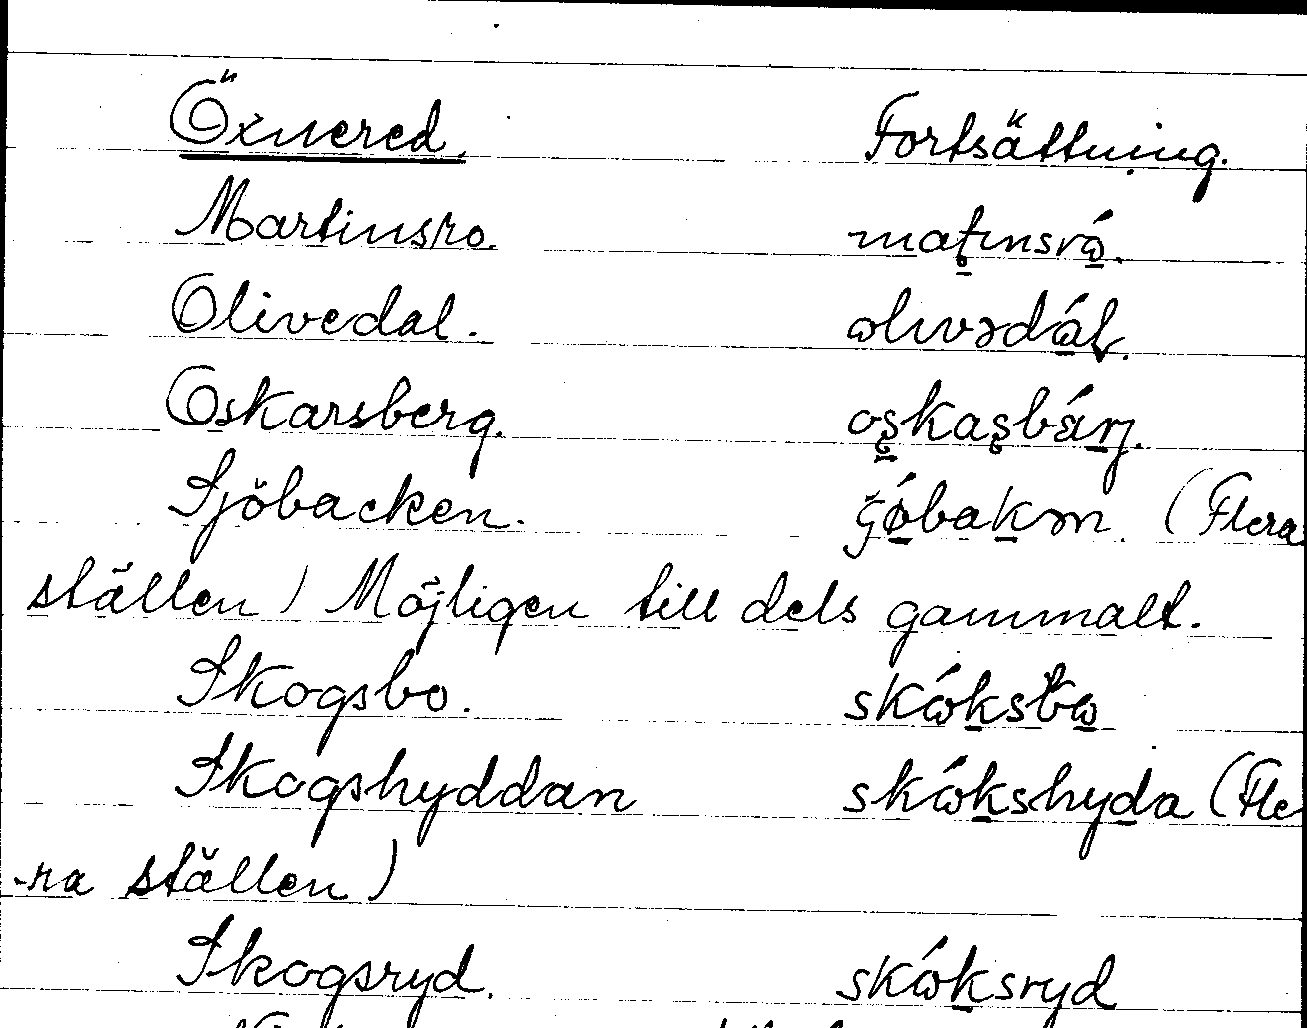 Öxnered. Fortsättning.
Martinsro. matinsrɷ́.
Olivedal. ɷlıvədál.
Oskarsberg. oskasbárj.
Sjöbacken. ʃǿbakən. (Flera
ställen) Möjligen till dels gammalt.
Skogsbo. skɷ́ksbɷ
Skogshyddan skɷ́kshyda (Fle
-ra ställen)
Skogsryd. skɷ́ksryd